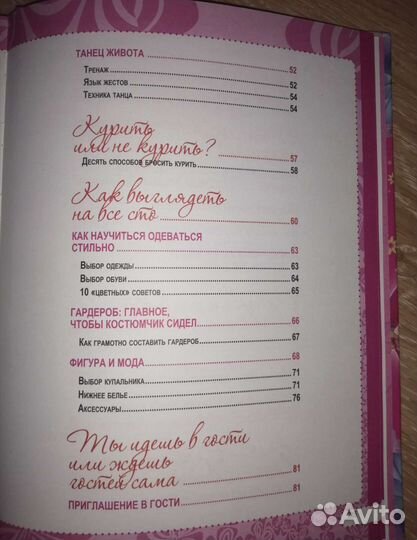 ТАНЕЦ ЖИВОТА 52
Тренаж 52
Язык жестов 54
Техника танца 54
Курить
или не курить? 57
Десять способов бросить курить 58
Как выглядеть
на все сто 60
КАК НАУЧИТЬСЯ ОДЕВАТЬСЯ
СТИЛЬНО 63
Выбор одежды 63
Выбор обуви 64
10 «цветных» советов 65
ГАРДЕРОБ: ГЛАВНОЕ,
ЧТОБЫ КОСТЮМЧИК СИДЕЛ 66
Как грамотно составить гардероб 67
ФИГУРА И МОДА 68
Выбор купальника 71
Нижнее белье 71
Аксессуары 76
Ты идешь в гости
или ждешь
гостей сама 81
ПРИГЛАШЕНИЕ В ГОСТИ 81
Avito